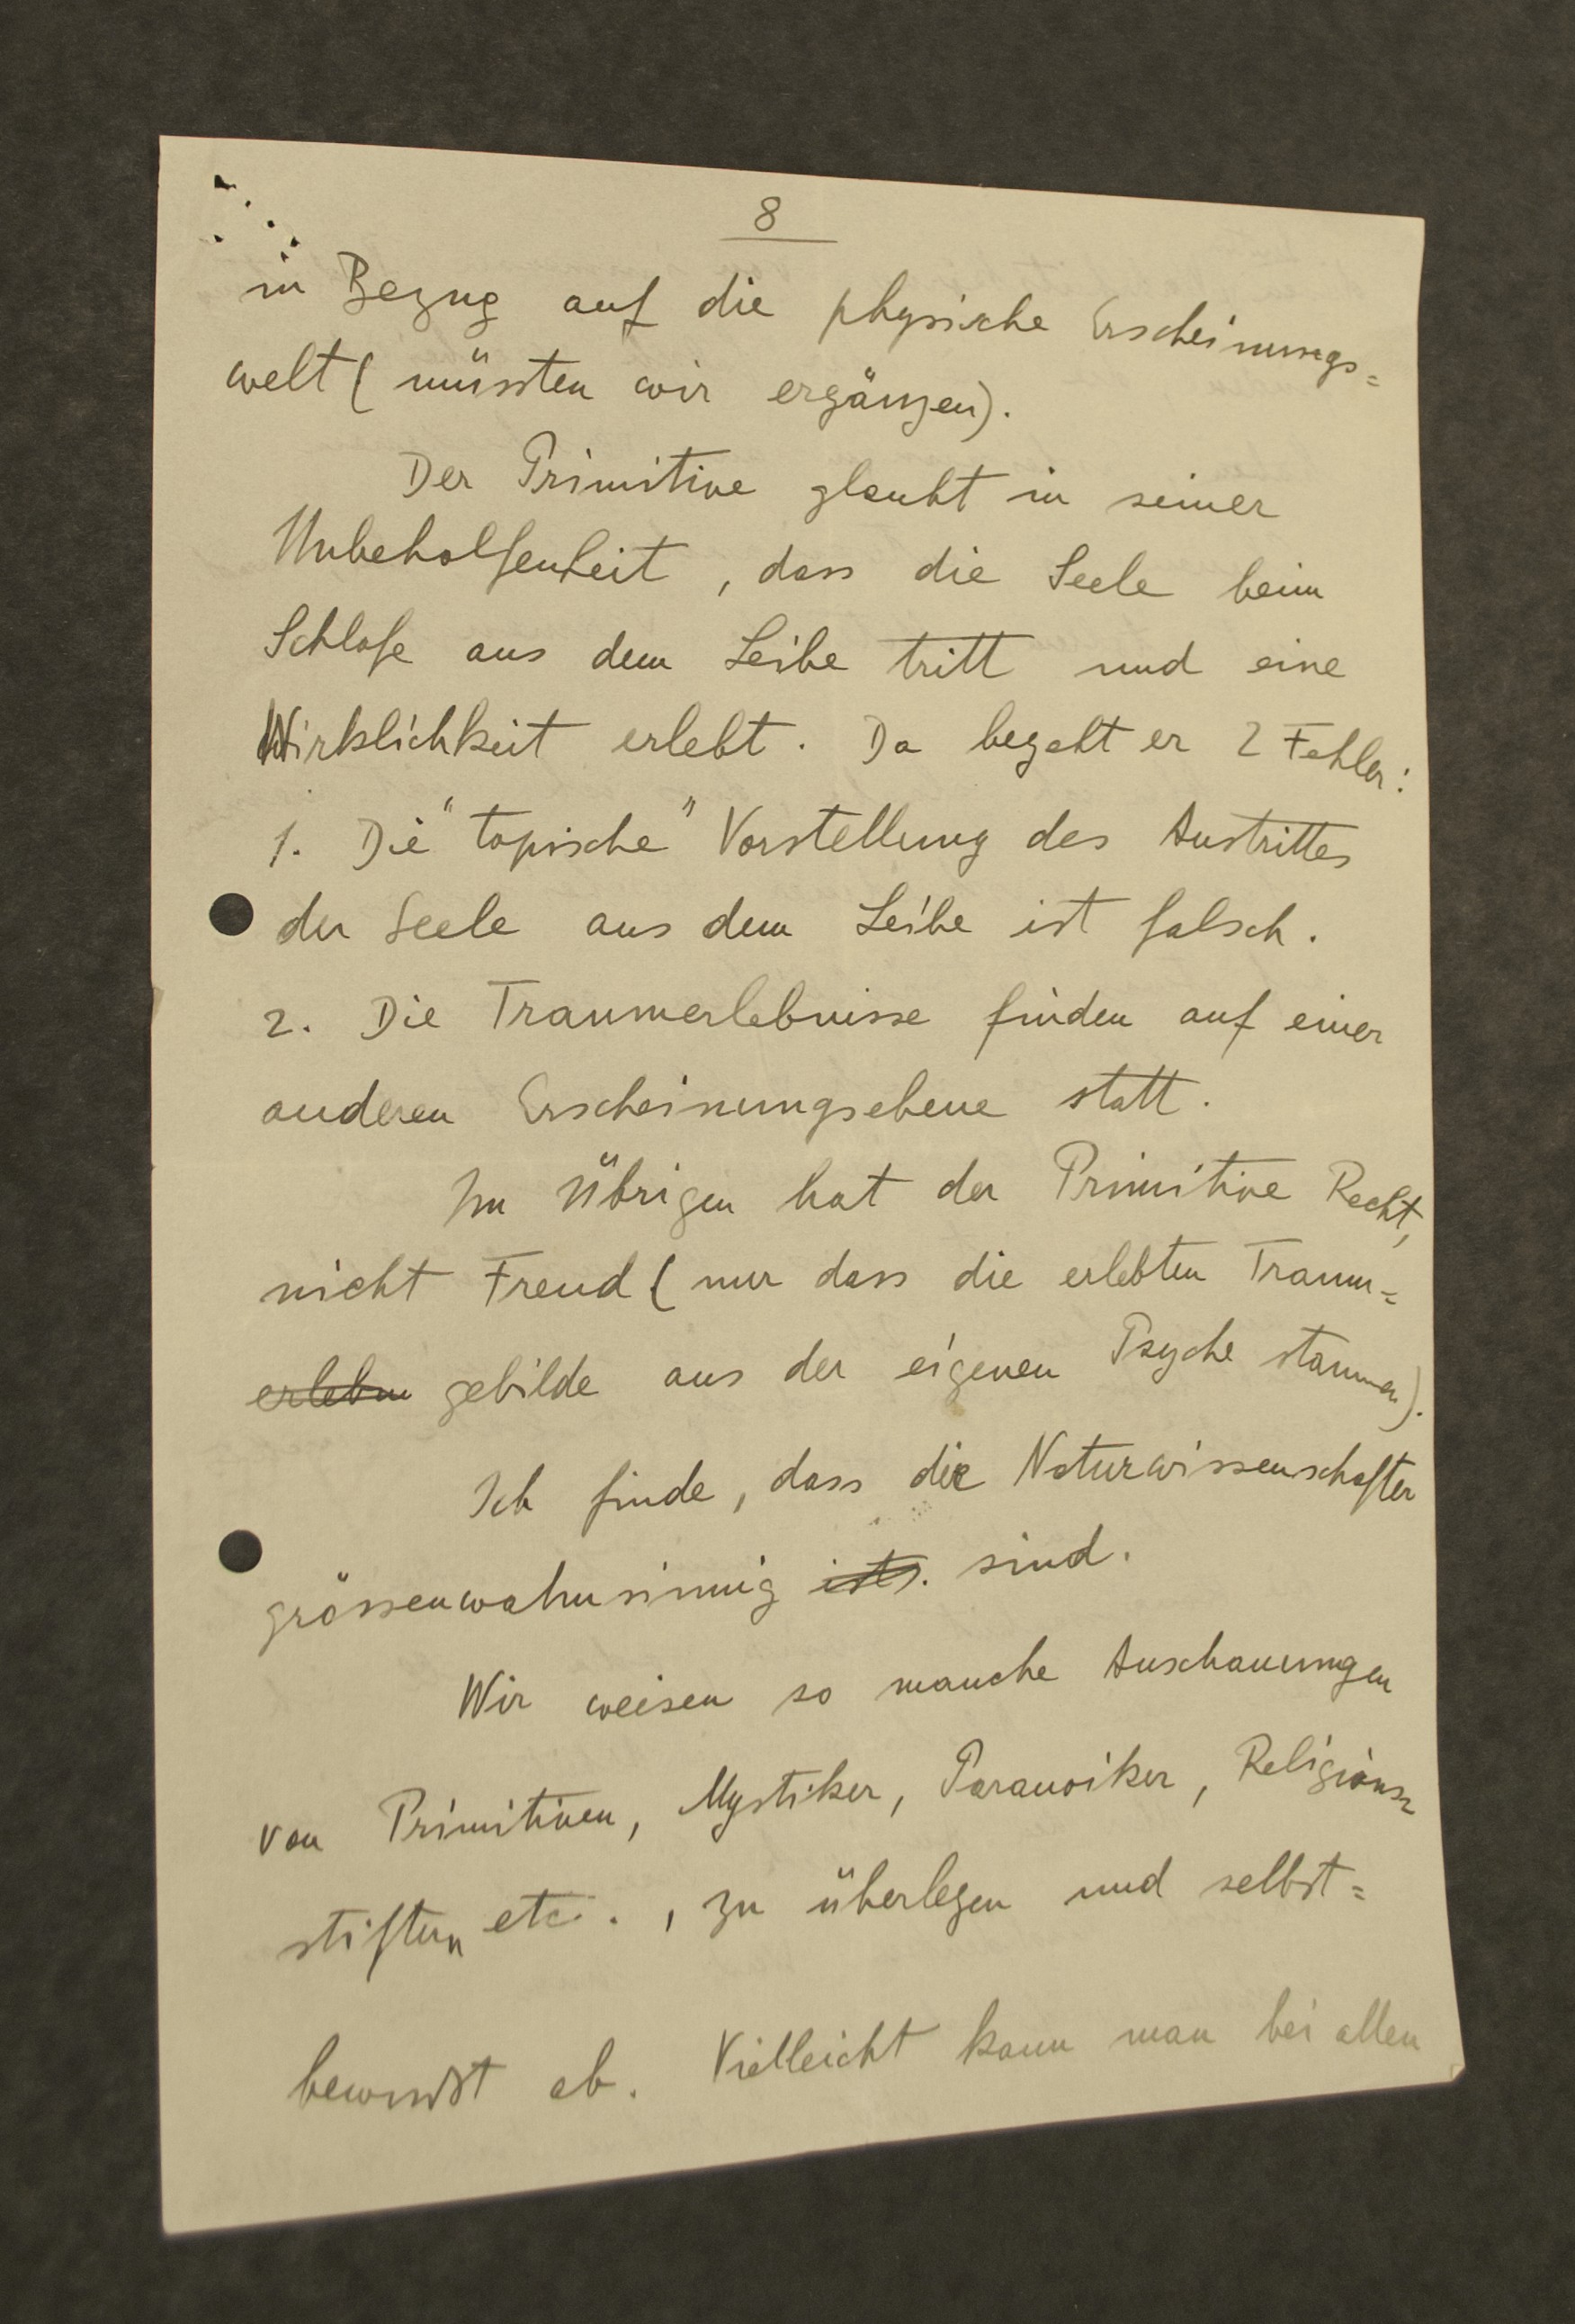 8
in Bezug auf die physische Erscheinungs=
welt (müssten wir ergänzen).
Der Primitive glaubt in seiner
Unbeholfenheit, dass die Seele beim
Schlafe aus dem Leibe tritt und eine
Wirklichkeit erlebt. Da begeht er 2 Fehler:
1. Die "topische" Vorstellung des Austrittes
der Seele aus dem Leibe ist falsch.
2. Die Traumerlebnisse finden auf einer
anderen Erscheinungsebene statt.
Im Übrigen hat der Primitive Recht,
nicht Freud (nur dass die erlebten Traum=
erlebn gebilde aus der eigenen Psyche stammen).
Ich finde, dass die Naturwissenschafter
grössenwahnsinnig ist. sind.
Wir weisen so manche Anschauungen
von Primitiven, Mystiker, Paranoiker, Religions=
stiftern etc., zu überlegen und selbst=
bewusst ab. Vielleicht kann man bei allen